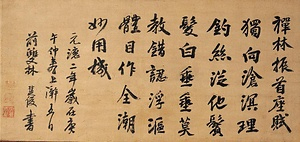 禪林振首座賦
獨向滄溟理
釣絲從他鬢
髮白垂垂莫
教錯認浮漚
體目作全潮
妙用機
元漉二年歲在庚
午仲春上澣五日
前雙林 書